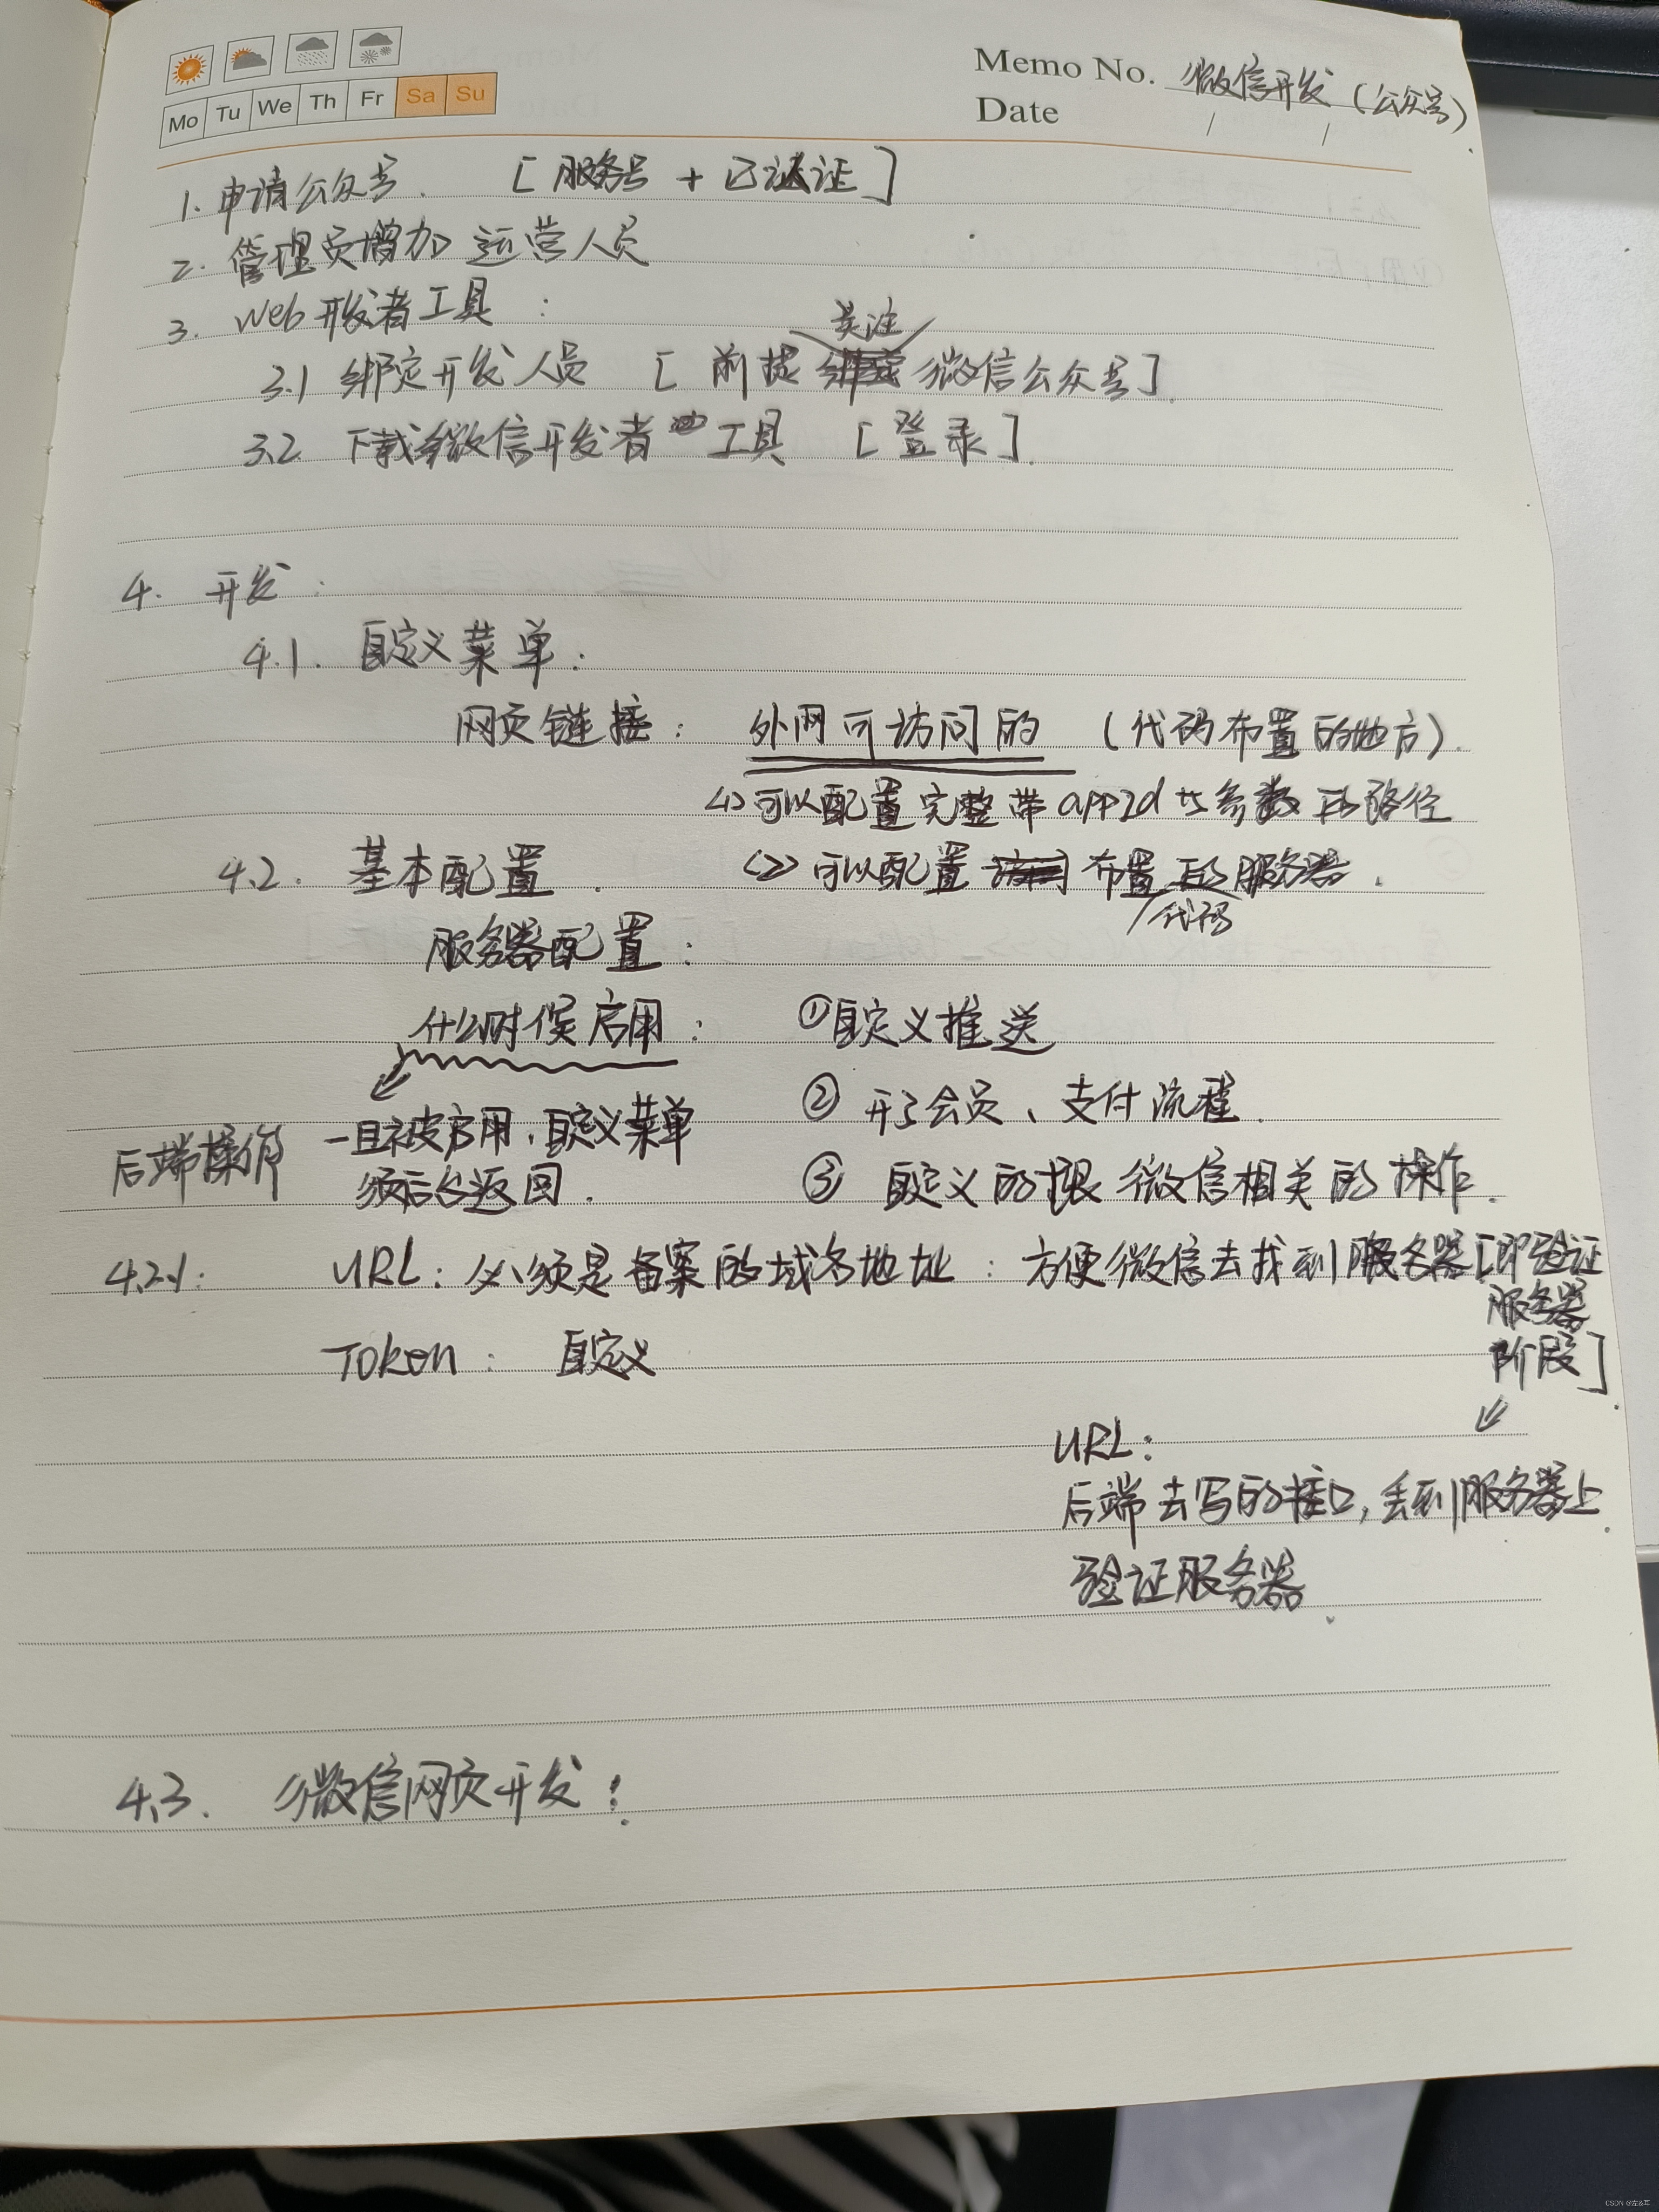 Memo No. 微信开发（公众号）
Mo Tu We Th Fr Sa Su
Date / /
1. 申请公众号. [服务号 + 已认证]
2. 管理员增加 运营人员
3. Web开发者工具:
关注
3.1 绑定开发人员 [前提 微信公众号].
3.2 下载微信开发者 工具 [登录].
4. 开发:
4.1. 自定义菜单:
网页链接: 外网可访问的 (代码布置的地方).
<1>可以配置完整带appId 参数的路径
4.2. 基本配置. <2>可以配置 布置的服务器.
代码
服务器配置:
什么时候启用: ①自定义推送
②开了会员、支付流程.
后端操作 一旦被启用,自定义菜单
须后台返回. ③自定义的 微信相关的操作.
4.2.1: URL: 必须是备案的域名地址: 方便微信去找到服务器[即验证
服务器
Token: 自定义
阶段]
URL:
后端去写的接口,丢到服务器上
验证服务器.
4.3. 微信网页开发:
CSDN @左&耳